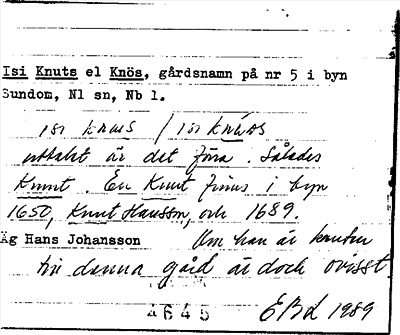 Isi Knuts el Knös, gårdsnamn på nr 5 i byn
Sundom, Nl sn, Nb l.
isi knus / isi knös
uttalet är det förra. Således
Knut. En Knut finns i byn
1650, Knut Hansson, och 1689.
Äg Hans Johansson Om han är knuten
till denna gård är dock ovisst
4645 EBd 1989